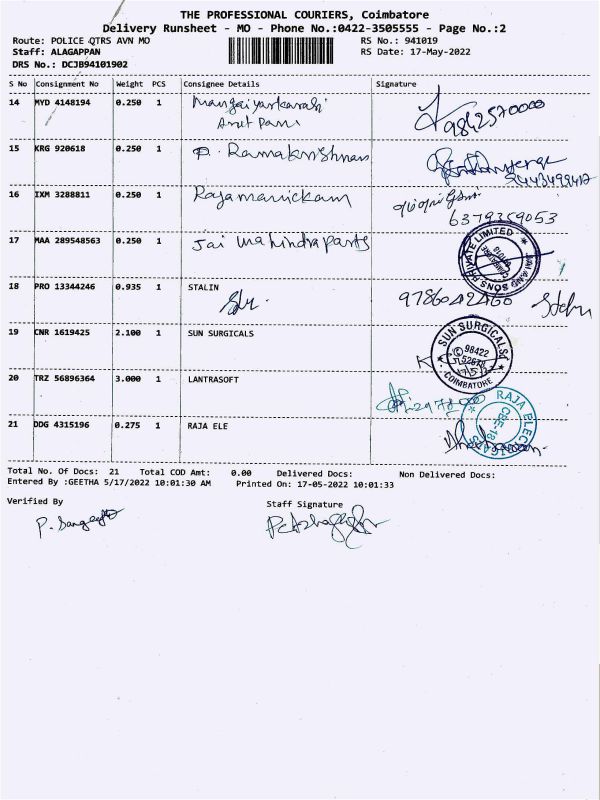 THE PROFESSIONAL COURIERS, Coimbatore
Delivery Runsheet - MO - Phone No.:0422-3505555 - Page No.:2
Route: POLICE QTRS AVN MO RS No.: 941019
Staff: ALAGAPPAN RS Date: 17-May-2022
DRS No.: DCJB94101902
S No Consignment No Weight PCS Consignee Details Signature
14 MYD 4148194 0.250 1 9842570000
15 KRG 920618 0.250 1 P. Ramakrishnan
16 IXM 3288811 0.250 1 Rajamanickam
6379359053
17 MAA 289548563 0.250 1 Jai Mahindra Parts JAI AND SONS PRIVATE LIMITED
18 PRO 13344246 0.935 1 STALIN
19 CNR 1619425 2.100 1 SUN SURGICALS SUN SURGICALS 98422 COIMBATORE
20 TRZ 56896364 3.000 1 LANTRASOFT
21 DDG 4315196 0.275 1 RAJA ELE RAJA CBE-18
Total No. Of Docs: 21 Total COD Amt: 0.00 Delivered Docs: Non Delivered Docs:
Entered By :GEETHA 5/17/2022 10:01:30 AM Printed On: 17-05-2022 10:01:33
Verified By Staff Signature